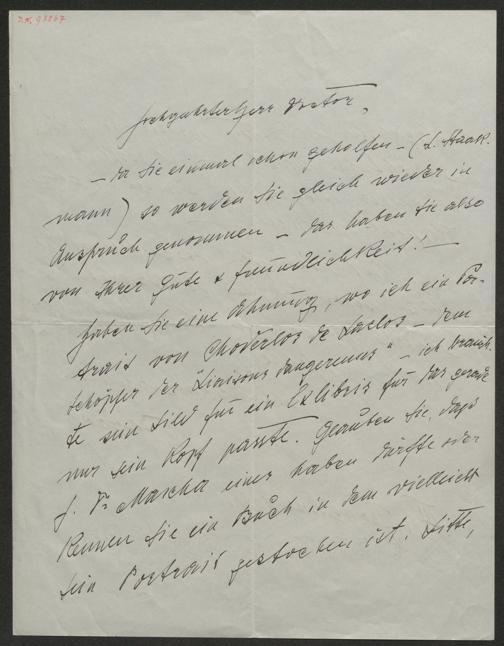 I.N. 93867
Hochgeehrter Herr Doctor,
– da Sie einmal schon geholfen – (L. Staak-
mann) so werden Sie gleich wieder in
Anspruch genommen – das haben Sie also
von Ihrer Güte & Freundlichkeit! –
Haben Sie eine Ahnung, wo ich ein Por-
trait von Choderlos de Laclos – dem
Schöpfer der "Liaisons dangereuses" – ich brauch-
te sein Bild für ein Exlibris für das gerade
nur sein Kopf passte. Glauben Sie, dass
H. Dr Mascha eines haben dürfte oder
kennen Sie ein Buch in dem vielleicht
sein Portrait gestochen ist. Bitte,